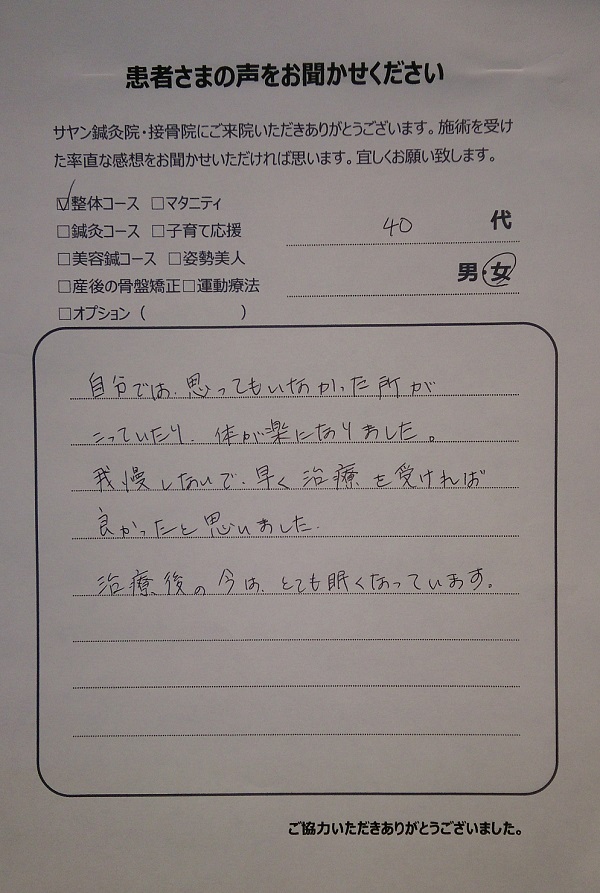 患者さまの声をお聞かせください
サヤン鍼灸院・接骨院にご来院いただきありがとうございます。施術を受け
た率直な感想をお聞かせいただければ思います。宜しくお願い致します。
☑整体コース □マタニティ
□鍼灸コース □子育て応援
□美容鍼コース □姿勢美人
□産後の骨盤矯正□運動療法
□オプション（　　　　　　）
40 代
男・女
自分では、思ってもいなかった所が
こっていたり、体が楽になりました。
我慢しないで、早く治療を受ければ
良かったと思いました。
治療後の今は、とても眠くなっています。
ご協力いただきありがとうございました。